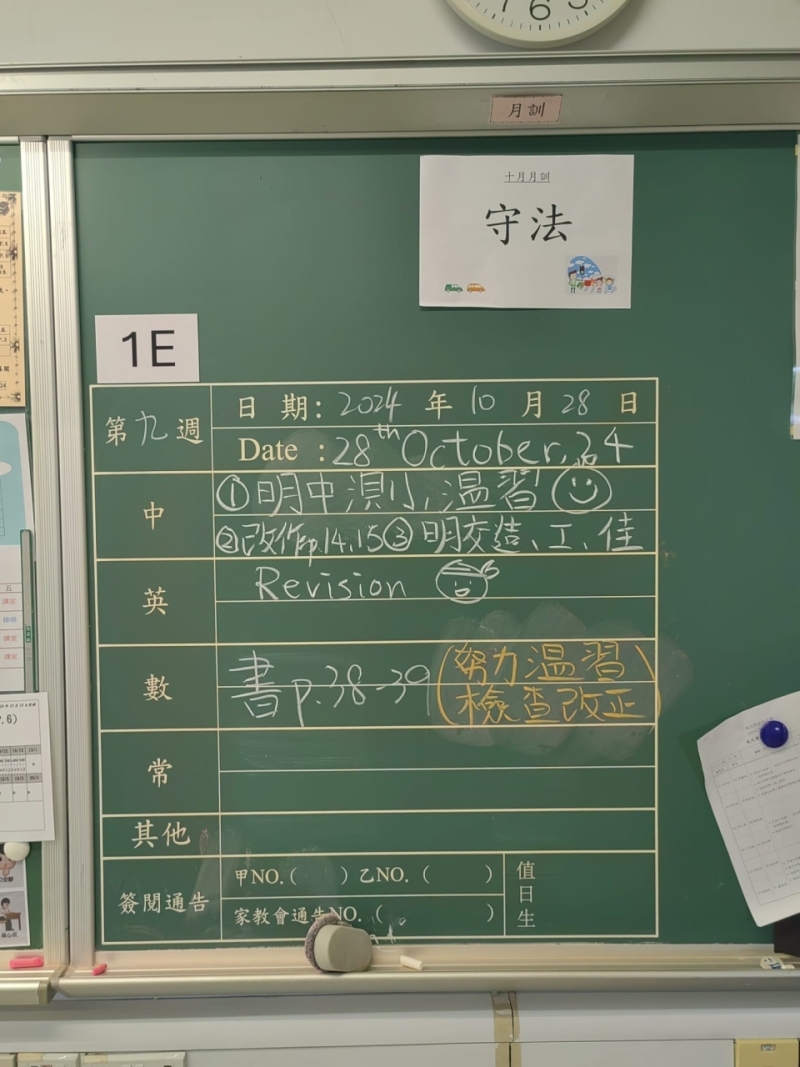 6
月訓
十月月訓
守法
1E
第九週
日期：2024年10月28日
Date：28th October, 24
中
①明中測小，溫習
②改作p.14.15③明交造、工、佳
英
Revision
數
書p.38-39
(努力溫習
檢查改正)
常
其他
簽閱通告
甲NO.( )乙NO.( )
家教會通告NO.( )
值日生